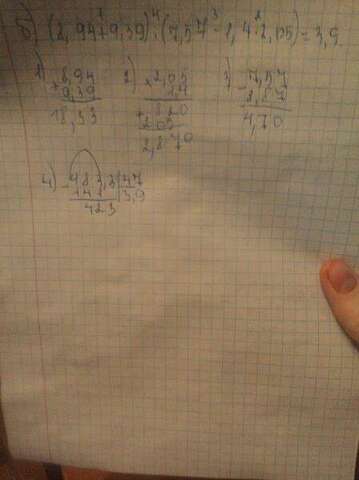 б) (8,94+9,39):(7,57-1,4·2,05)=3,9
1) 8,94 2) 2,05 3) 7,57
+ 9,39 × 1,4 - 2,87
18,33 820 4,70
+ 205
2,870
4) 183,3 | 47
- 141 | 3,9
423